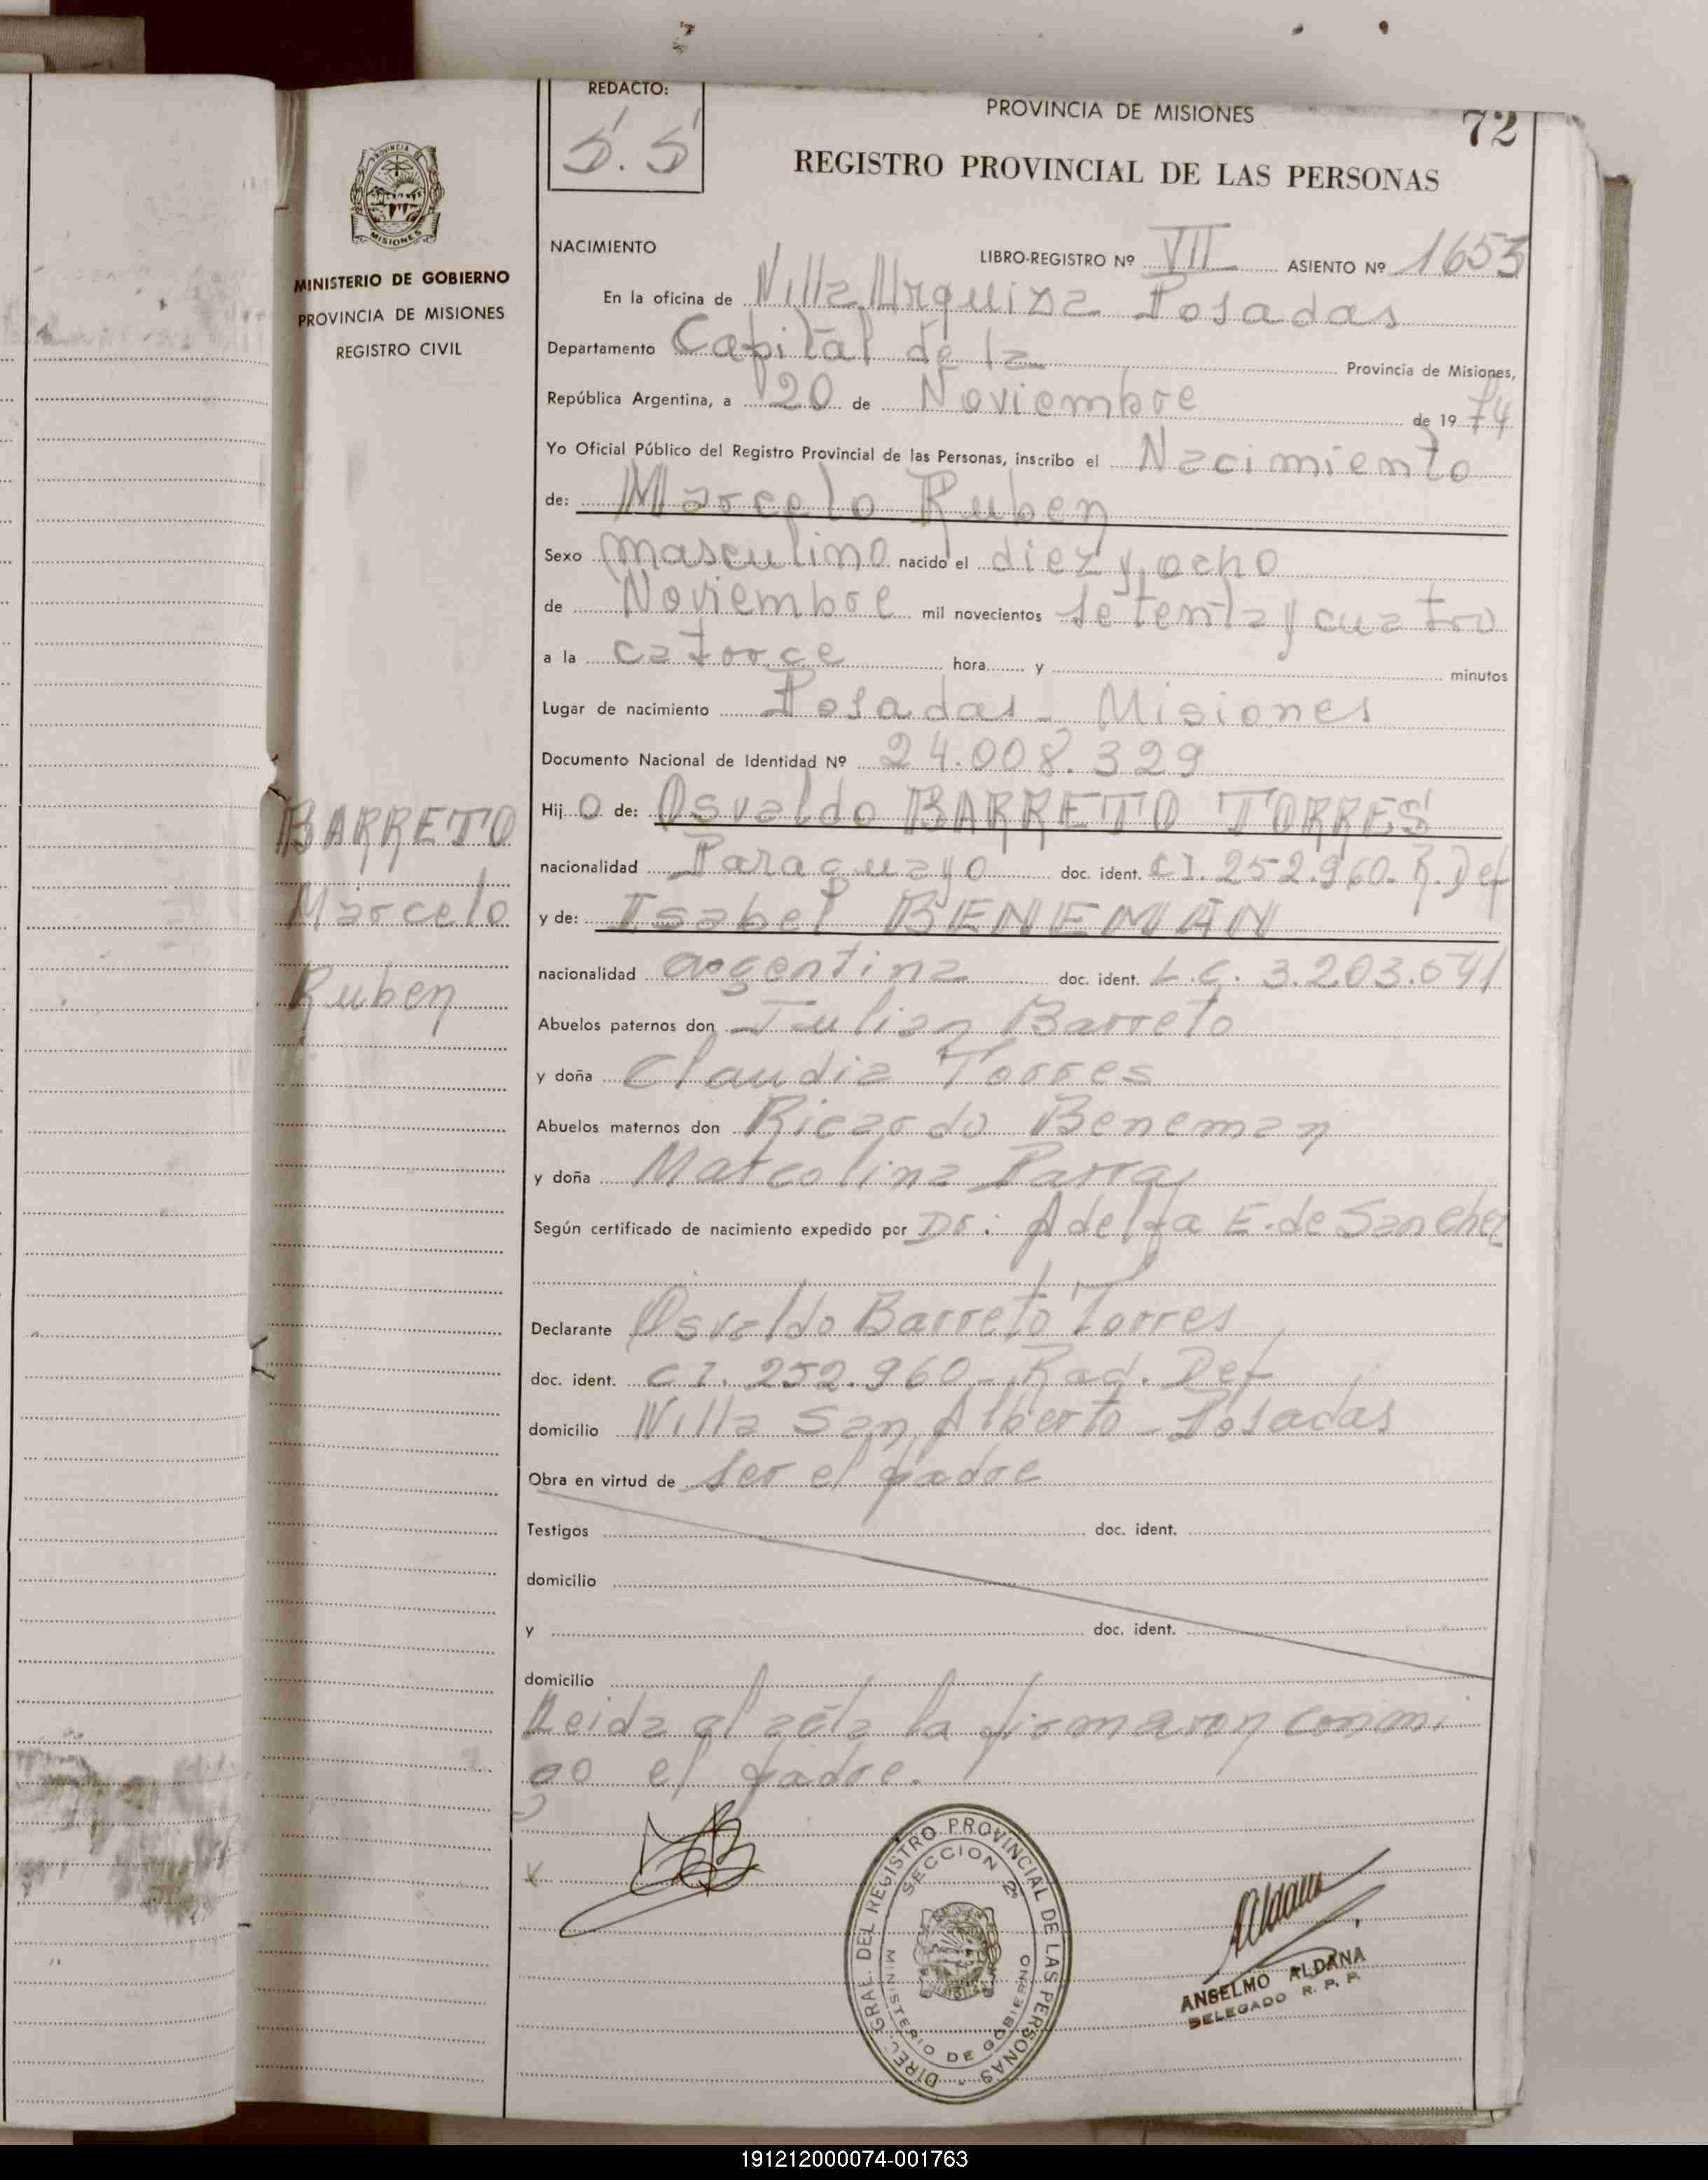 REDACTO:
S. S
PROVINCIA DE MISIONES
72
REGISTRO PROVINCIAL DE LAS PERSONAS
PROVINCIA DE
MISIONES
MINISTERIO DE GOBIERNO
PROVINCIA DE MISIONES
REGISTRO CIVIL
BARRETO
Marcelo
Ruben
NACIMIENTO
LIBRO-REGISTRO Nº VII ASIENTO Nº 1653
En la oficina de Villa Urquiza Posadas
Departamento Capital de la Provincia de Misiones,
República Argentina, a 20 de Noviembre de 1974
Yo Oficial Público del Registro Provincial de las Personas, inscribo el Nacimiento
de: Marcelo Ruben
Sexo masculino nacido el diez y ocho
de Noviembre mil novecientos setenta y cuatro
a la catorce hora y minutos
Lugar de nacimiento Posadas - Misiones
Documento Nacional de Identidad Nº 24.008.329
Hijo de: Osvaldo BARRETO TORRES
nacionalidad Paraguayo doc. ident. C I. 252.960. R. Def
y de: Isabel BENEMAN
nacionalidad argentina doc. ident. L.C. 3.203.641
Abuelos paternos don Julian Barreto
y doña Claudia Torres
Abuelos maternos don Ricardo Beneman
y doña Marcolina Parra
Según certificado de nacimiento expedido por Dr: Adelfa E. de Sanchez
Declarante Osvaldo Barreto Torres
doc. ident. C I. 252.960 - Rad. Def
domicilio Villa San Alberto - Posadas
Obra en virtud de ser el padre
Testigos doc. ident.
domicilio
y doc. ident.
domicilio
Leida el acta la firmaron conmi
go el padre.
X
DIREC. GRAL. DEL REGISTRO PROVINCIAL DE LAS PERSONAS
SECCION 2ª
MINISTERIO DE GOBIERNO
Aldana
ANSELMO ALDANA
DELEGADO R. P. P.
191212000074-001763